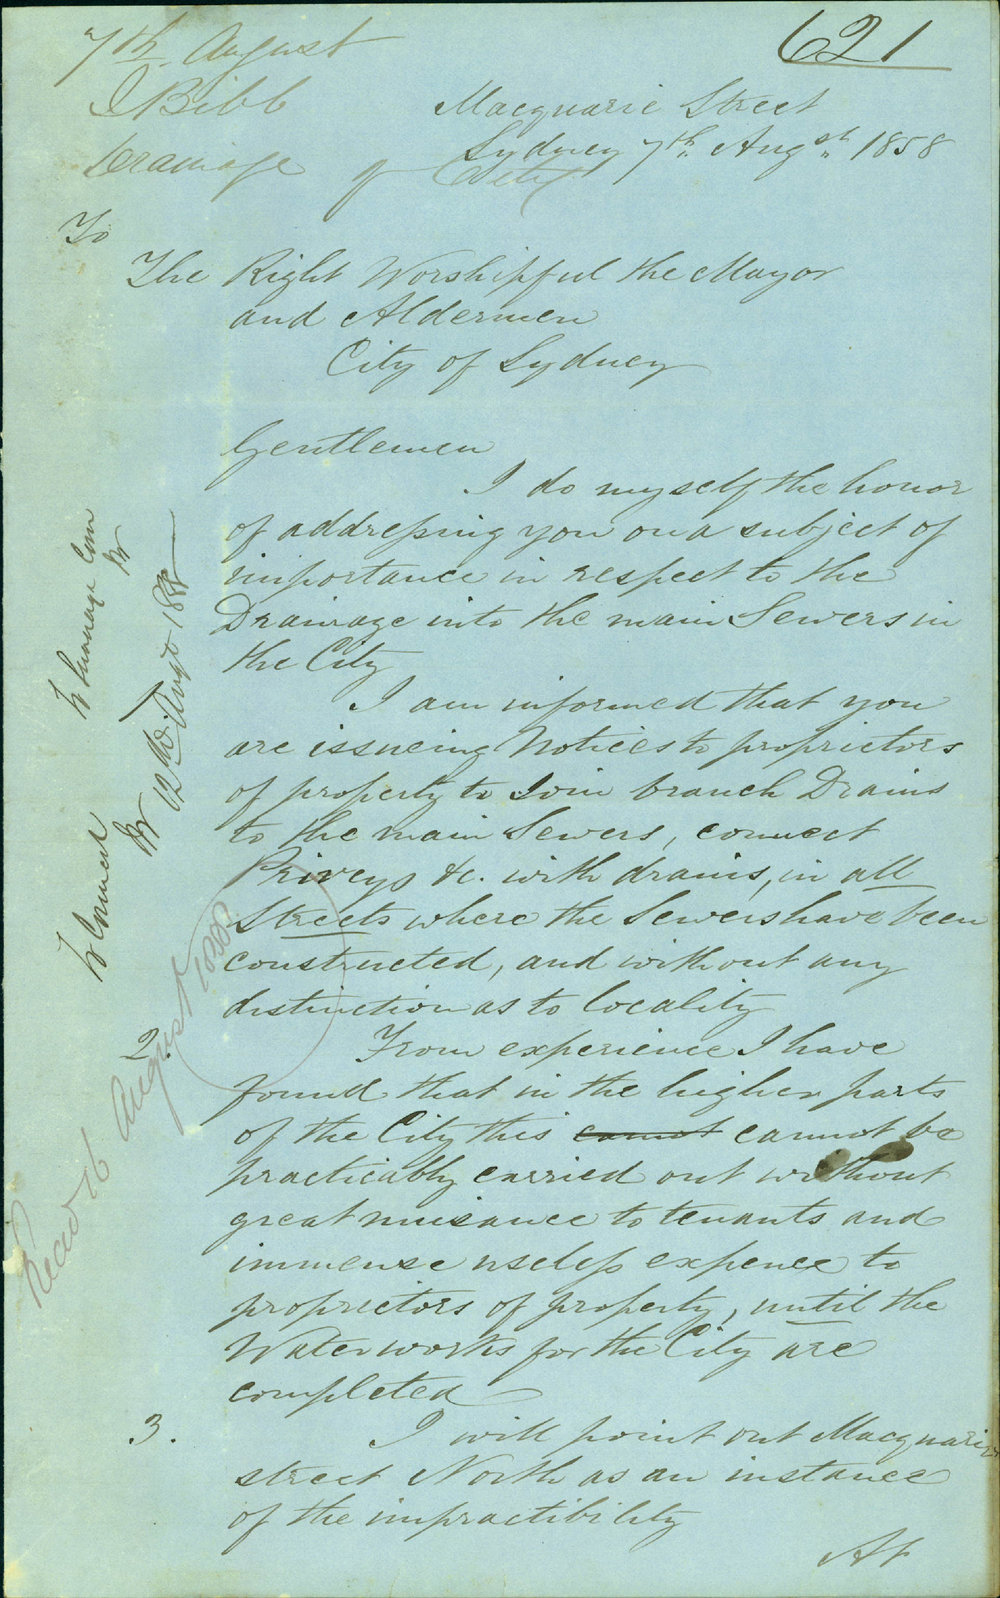 7th. August
J Bibb
Drainage of City
621
Macquarie Street
Sydney 7th. Augst. 1858
To
The Right Worshipful the Mayor
and Aldermen
City of Sydney
Gentlemen
I do myself the honor
of addressing you on a subject of
importance in respect to the
Drainage into the main Sewers in
the City
I am informed that you
are issueing Notices to proprietors
of property to Join branch Drains
to the main Sewers, connect
Priveys &c. with drains, in all
Streets where the Sewers have been
constructed, and without any
distinction as to locality
2.
From experience I have
found that in the higher parts
of the City this cannot cannot be
practicably carried out without
great nuisance to tenants and
immense useless expence to
proprietors of property, until the
Waterworks for the City are
completed
3.
I will point out Macquarie
street North as an instance
of the impractibility
At
To Council
12 Augt 1858
Read 16 August 1858